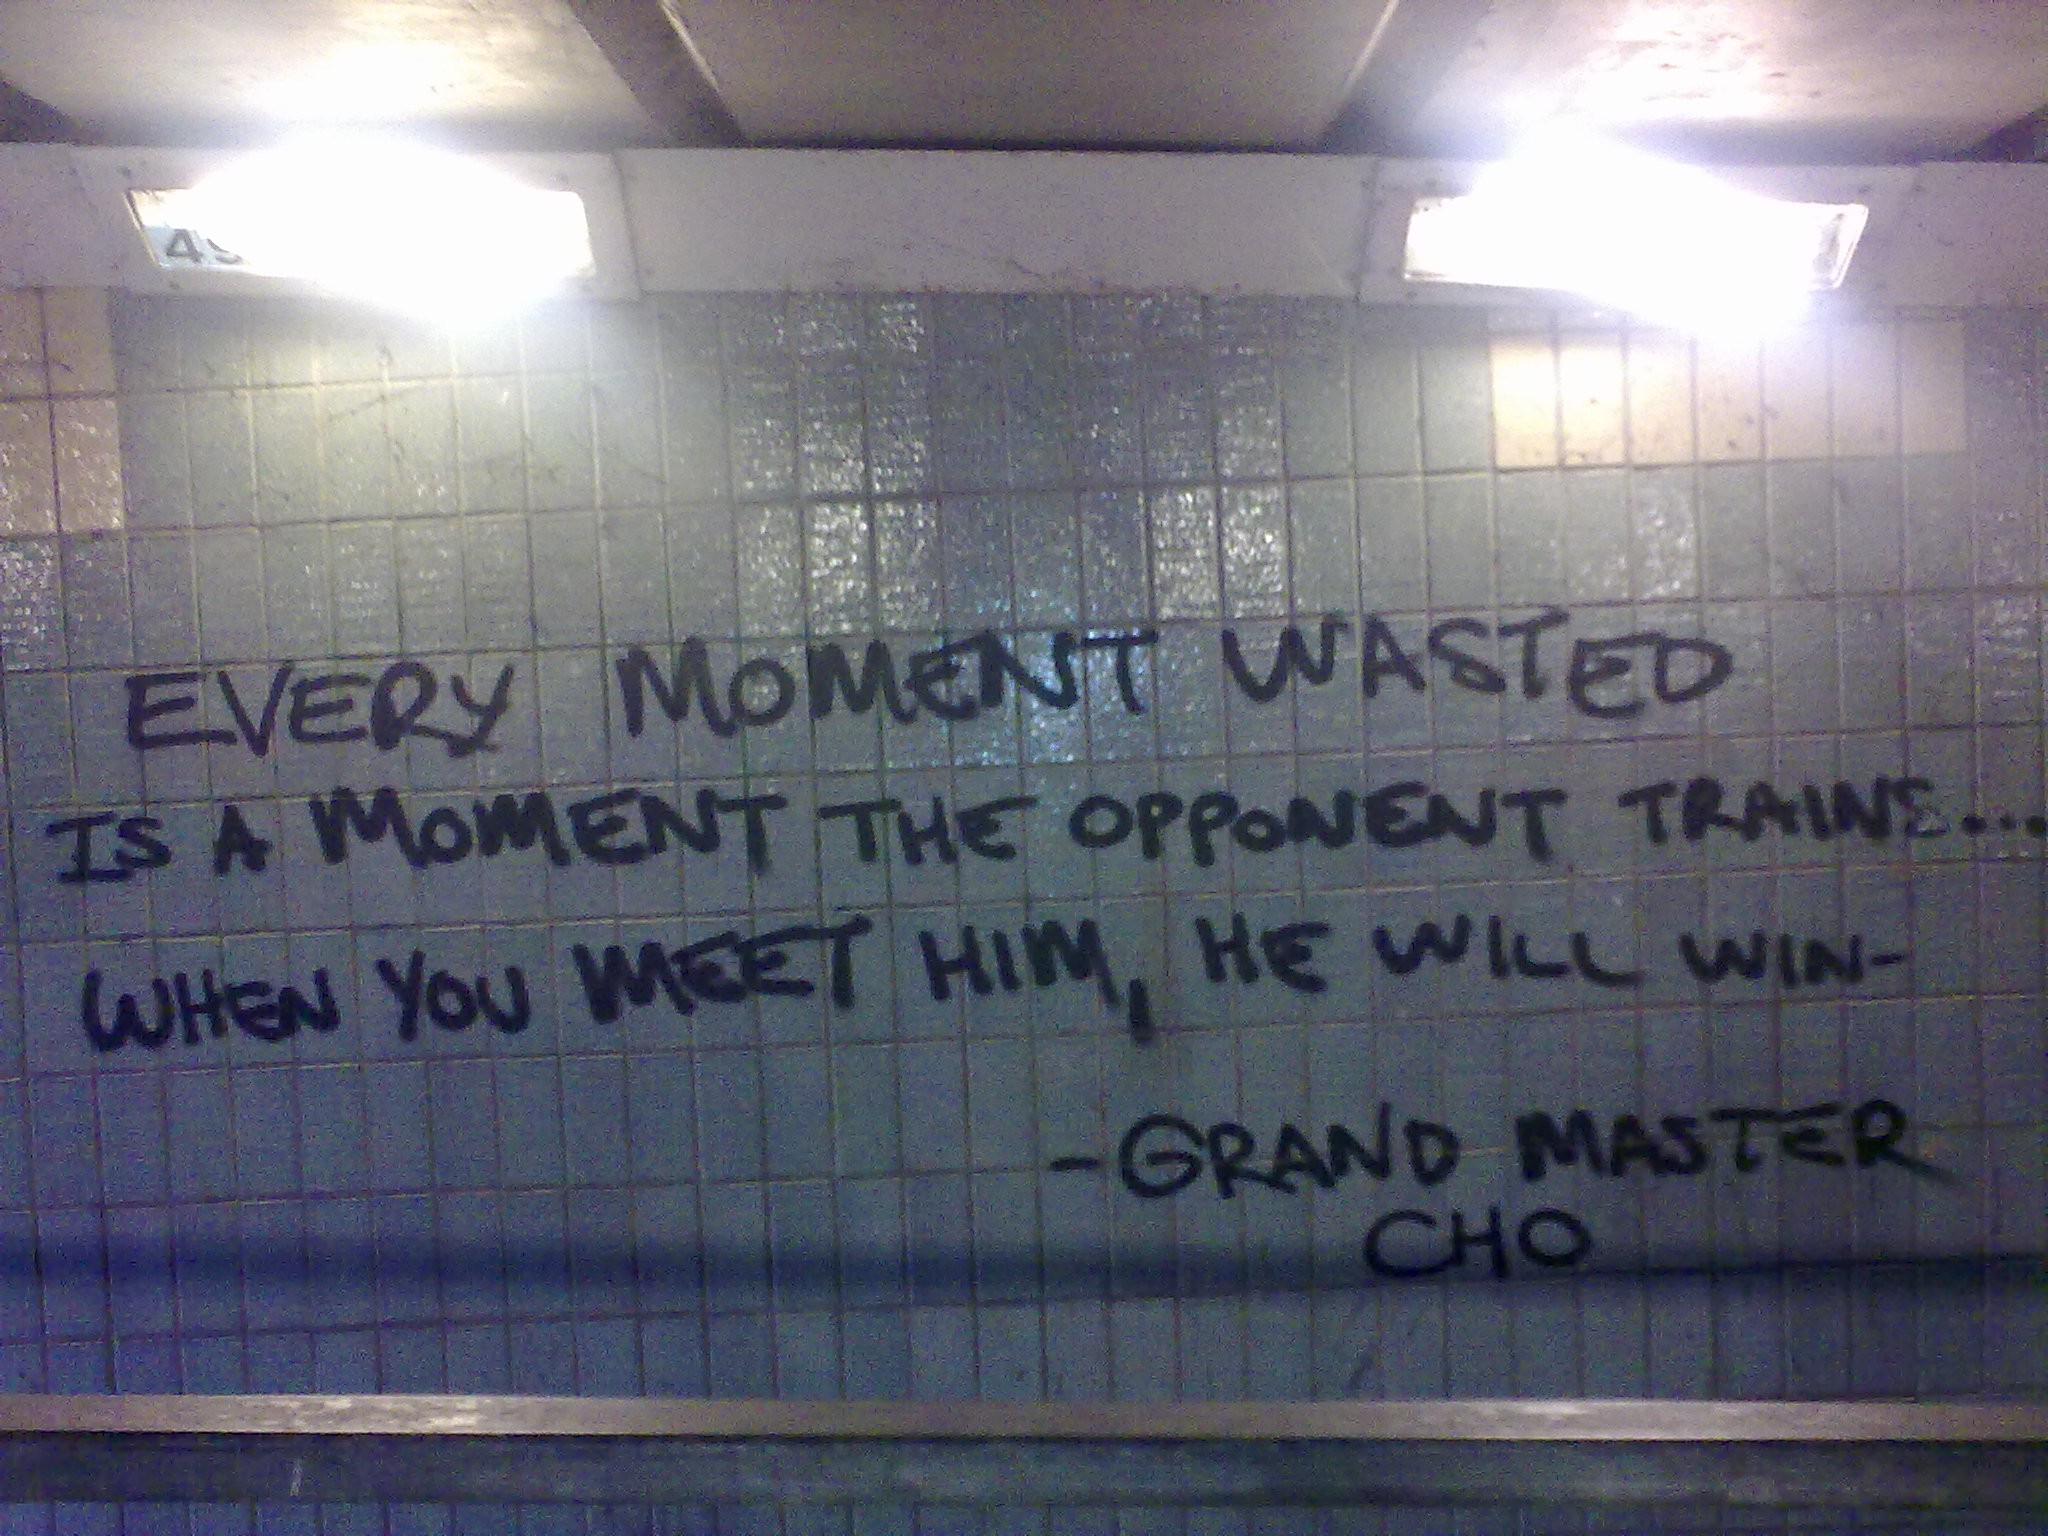 EVERY MOMENT WASTED
IS A MOMENT THE OPPONENT TRAINS...
WHEN YOU MEET HIM, HE WILL WIN-
-GRAND MASTER
CHO